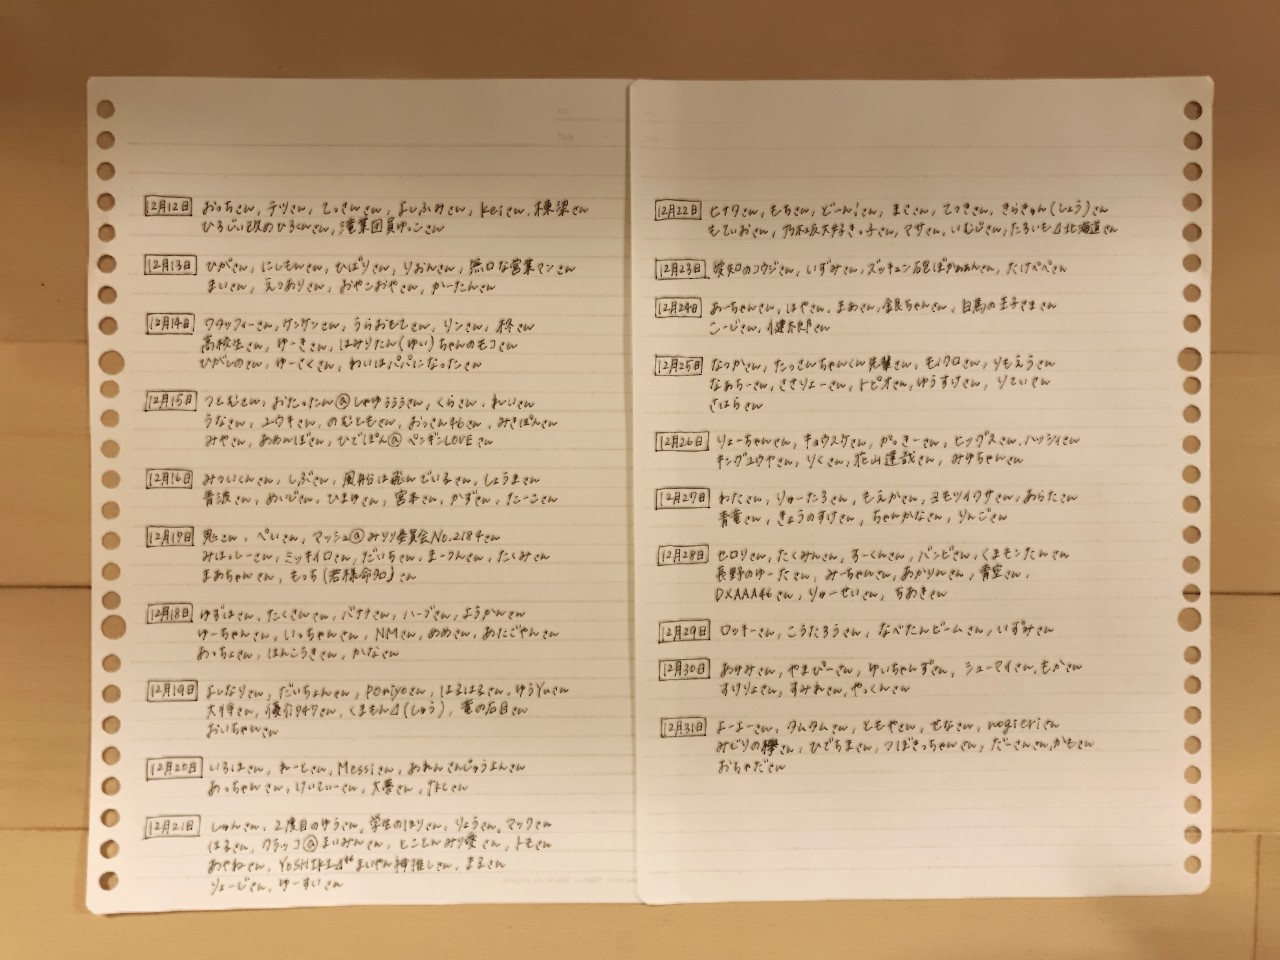 12月12日 おっちさん, テツさん, てっさんさん, よしふみさん, Keiさん, 棟梁さん
ひろじい改めひろくんさん, 滝業団員けっこさん
12月13日 ひがさん, にしもんさん, ひばりさん, りおんさん, 無口な営業マンさん
まいさん, えつありさん, おやこおやさん, かーたんさん
12月14日 ワタッフィーさん, ケンケンさん, うらおもてさん, リンさん, 柊さん
高校生さん, ゆーきさん, はみりたん(ゆい)ちゃんのモコさん
ひがしのさん, ゆーさくさん, わいはパパになったさん
12月15日 つとむさん, おたったん@しゃゆうううさん, くらさん, れいさん
うなさん, ユウキさん, のむともさん, おっさん46さん, みきぽんさん
みやさん, あめんぼさん, ひでぽん@ペンギンLOVEさん
12月16日 みついくんさん, しぶさん, 風船は飛んでいるさん, しょうまさん
青波さん, めいじさん, ひまゆさん, 宮本さん, かずさん, たーこさん
12月17日 鬼さん, ぺいさん, マッシュ@みりり委員会No.2184さん
みはっしーさん, ミッキイロさん, だいちさん, まーつんさん, たくみさん
まあちゃんさん, もっち(若様命名)さん
12月18日 ゆずはさん, たくさんさん, バナナさん, ハーブさん, ようかんさん
ゆーちゃんさん, いっちゃんさん, NMさん, めめさん, あたごやんさん
あっちょさん, はんこうきさん, かなさん
12月19日 よしなりさん, だいちょんさん, poniyoさん, はるはるさん, ゆうYuさん
大将さん, 優介947さん, くまもん⊿(しゅう), 竜の右目さん
おいちゃんさん
12月20日 いろはさん, れーとさん, Messiさん, あれんさんじゅうよんさん
あっちゃんさん, けいてぃーさん, 大夢さん, たしさん
12月21日 しゅんさん, 2度目のゆうさん, 学生のはりさん, りょうさん, マックさん
はるさん, クラッコ@まいみんさん, とことんみり愛さん, トモさん
あやねさん, YOSHIKI⊿46まいやん神推しさん, まるさん
りょーじさん, ゆーすいさん
12月22日 ヒナタさん, もちさん, どーん!さん, まこさん, てつきさん, きらきゅん(しょう)さん
もてぃおさん, 乃木坂大好きっ子さん, マサさん, いむじさん, たろいも⊿北海道さん
12月23日 愛知のコウジさん, いずみさん, ズッキュン砲ばかぁぁんさん, たけぺぺさん
12月24日 あーちゃんさん, はやさん, まあさん, 金良ちゃんさん, 白馬の王子さまさん
こーじさん, 健太郎さん
12月25日 なつかさん, たっさんちゃんくん先輩さん, モノクロさん, りもえうさん
なぁちーさん, ささりょーさん, トピオさん, ゆうすけさん, りてぃさん
さはらさん
12月26日 りょーちゃんさん, キョウスケさん, がっきーさん, ヒッグスさん, ハッシィさん
キングユウヤさん, りくさん, 花山達哉さん, みゆちゃんさん
12月27日 わたさん, りゅーたろさん, もえかさん, ヨモツイクサさん, あらたさん
青竜さん, きょうのすけさん, ちゃんかなさん, りんごさん
12月28日 セロリさん, たくみんさん, すーくんさん, バンビさん, くまモンたんさん
長野のゆーたさん, みーちゃんさん, あかりんさん, 青空さん,
DXAAA46さん, りゅーせいさん, ちあきさん
12月29日 ロッキーさん, こうたろうさん, なべたんビームさん, いずみさん
12月30日 あゆみさん, やまぴーさん, ゆいちゃんずさん, シューマイさん, もかさん
すけりょさん, すみれさん, やっくんさん
12月31日 よーよーさん, タムタムさん, ともやさん, せなさん, nogieriさん
みどりの欅さん, ひでちまさん, つばきっちゃんさん, だーさんさん, かもさん
おちゃださん